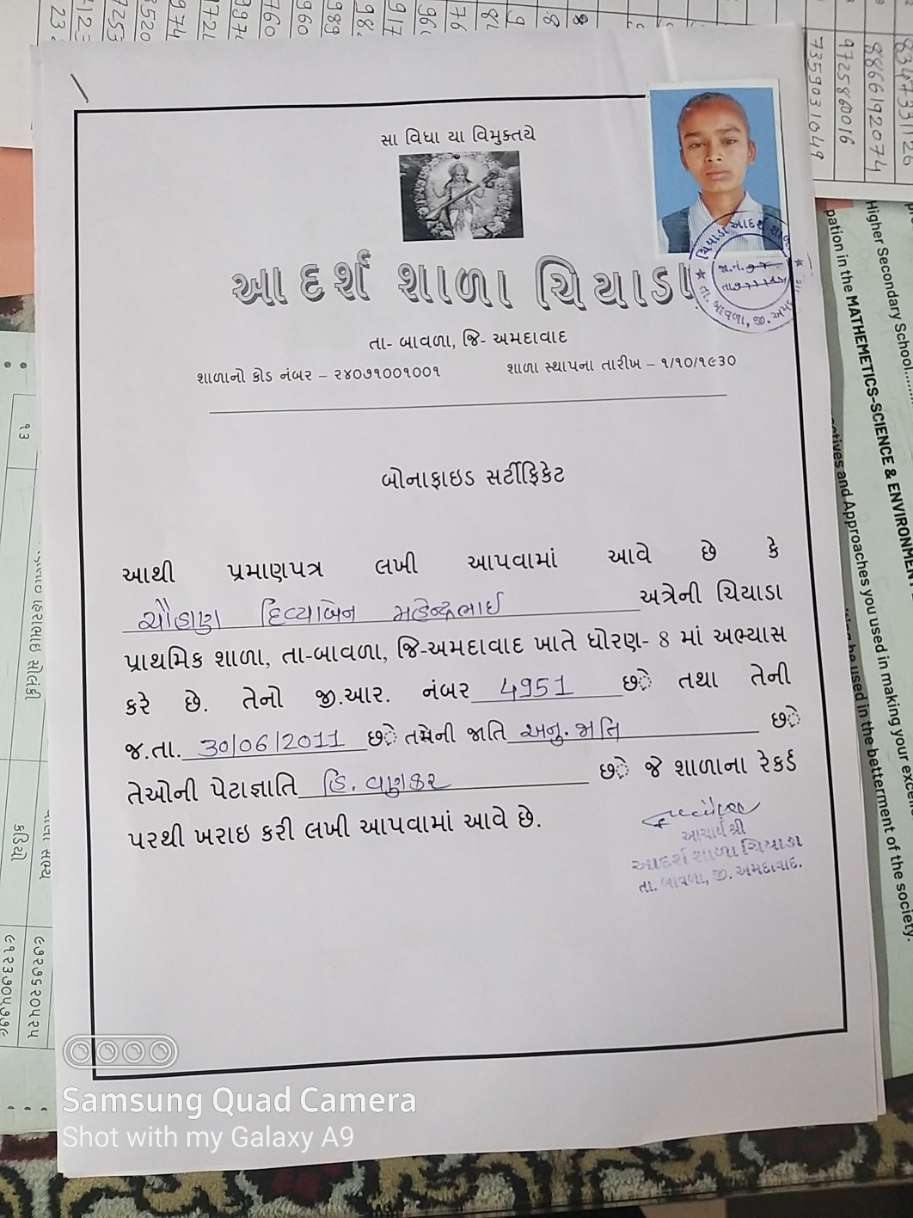 સા વિદ્યા યા વિમુક્તયે
આદર્શ શાળા ચિયાડા
તા- બાવળા, જિ- અમદાવાદ
શાળાનો કોડ નંબર – ૨૪૦૭૧૦૦૧૦૦૧ શાળા સ્થાપના તારીખ – ૧/૧૦/૧૯૩૦
બોનાફાઇડ સર્ટીફિકેટ
આથી પ્રમાણપત્ર લખી આપવામાં આવે છે કે
ચૌહાણ દિવ્યાબેન મહેન્દ્રભાઈ અત્રેની ચિયાડા
પ્રાથમિક શાળા, તા-બાવળા, જિ-અમદાવાદ ખાતે ધોરણ- 8 માં અભ્યાસ
કરે છે. તેનો જી.આર. નંબર 4951 છે તથા તેની
જ.તા. 30/06/2011 છે તેમની જાતિ અનુ. જાતિ છે
તેઓની પેટાજ્ઞાતિ હિ. વણકર છે જે શાળાના રેકર્ડ
પરથી ખરાઇ કરી લખી આપવામાં આવે છે.
આચાર્ય શ્રી
આદર્શ શાળા ચિયાડા
તા. બાવળા, જી. અમદાવાદ.
Samsung Quad Camera
Shot with my Galaxy A9
8347331126
8866192074
9725860016
7359031049
Higher Secondary School
pation in the MATHEMETICS-SCIENCE & ENVIRONMENT
ctives and Approaches you used in making your
be used in the betterment of the society.